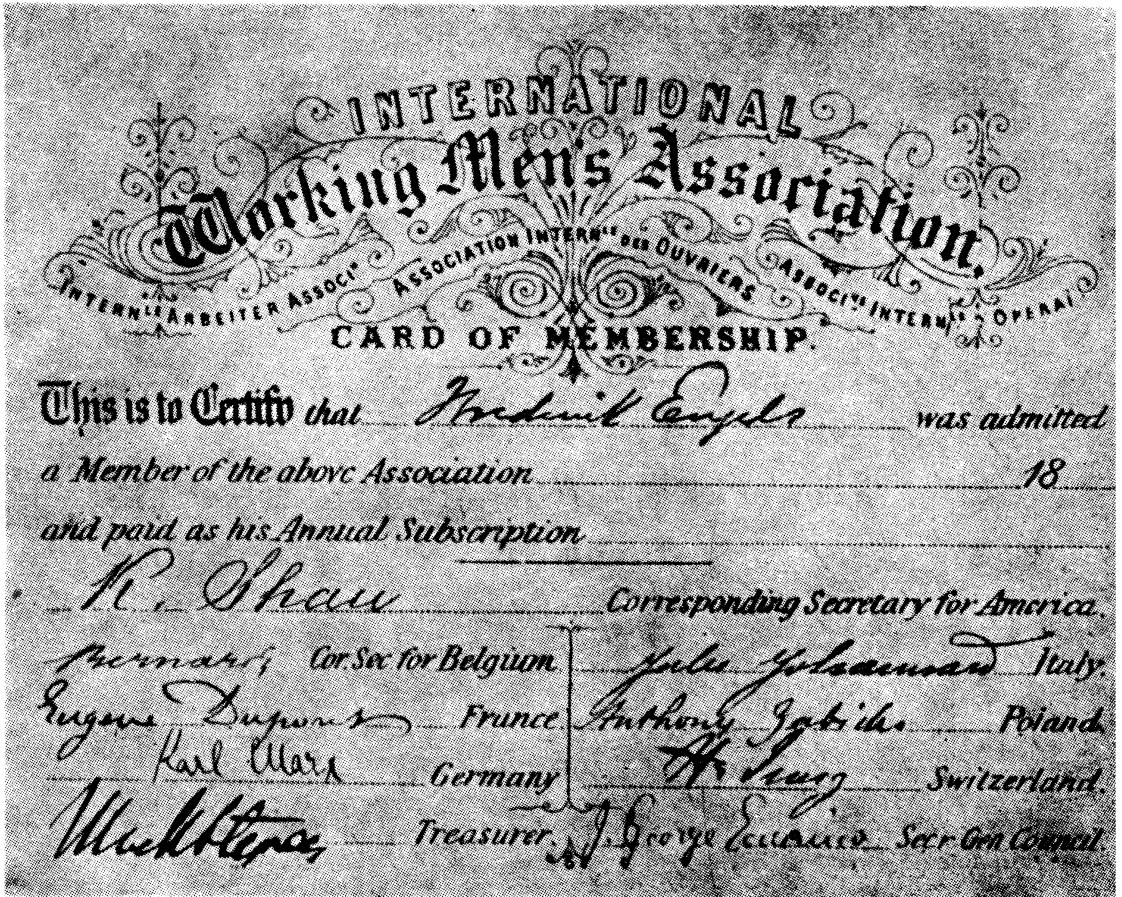 INTERNATIONAL
Working Men's Association,
INTERNLE ARBEITER ASSOCIN ASSOCIATION INTERNLE DES OUVRIERS ASSOCINE INTERNLE OPERAI
CARD OF MEMBERSHIP.
This is to Certify that Frederick Engels was admitted
a Member of the above Association 18
and paid as his Annual Subscription
R. Shaw Corresponding Secretary for America.
Bernard, Cor. Sec for Belgium Italy.
Eugene Dupont France Anthony Zabicki Poland
Karl Marx Germany H. Jung Switzerland.
Treasurer. J. George Eccarius Secr Gen Council.